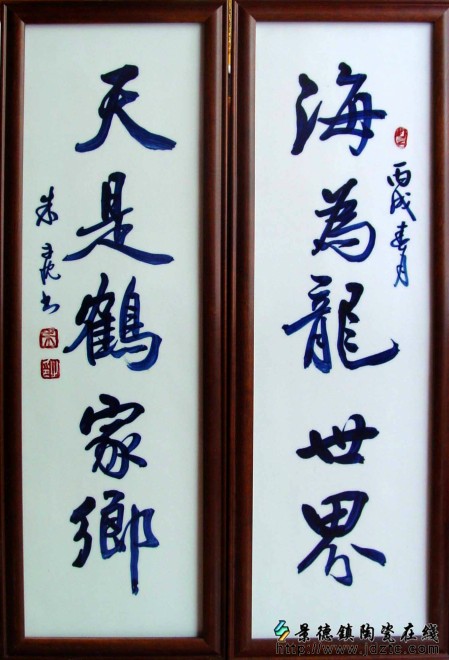 海為龍世界
丙戌春月
天是鶴家鄉
朱
书
景德镇陶瓷在线
www.jdztc.com